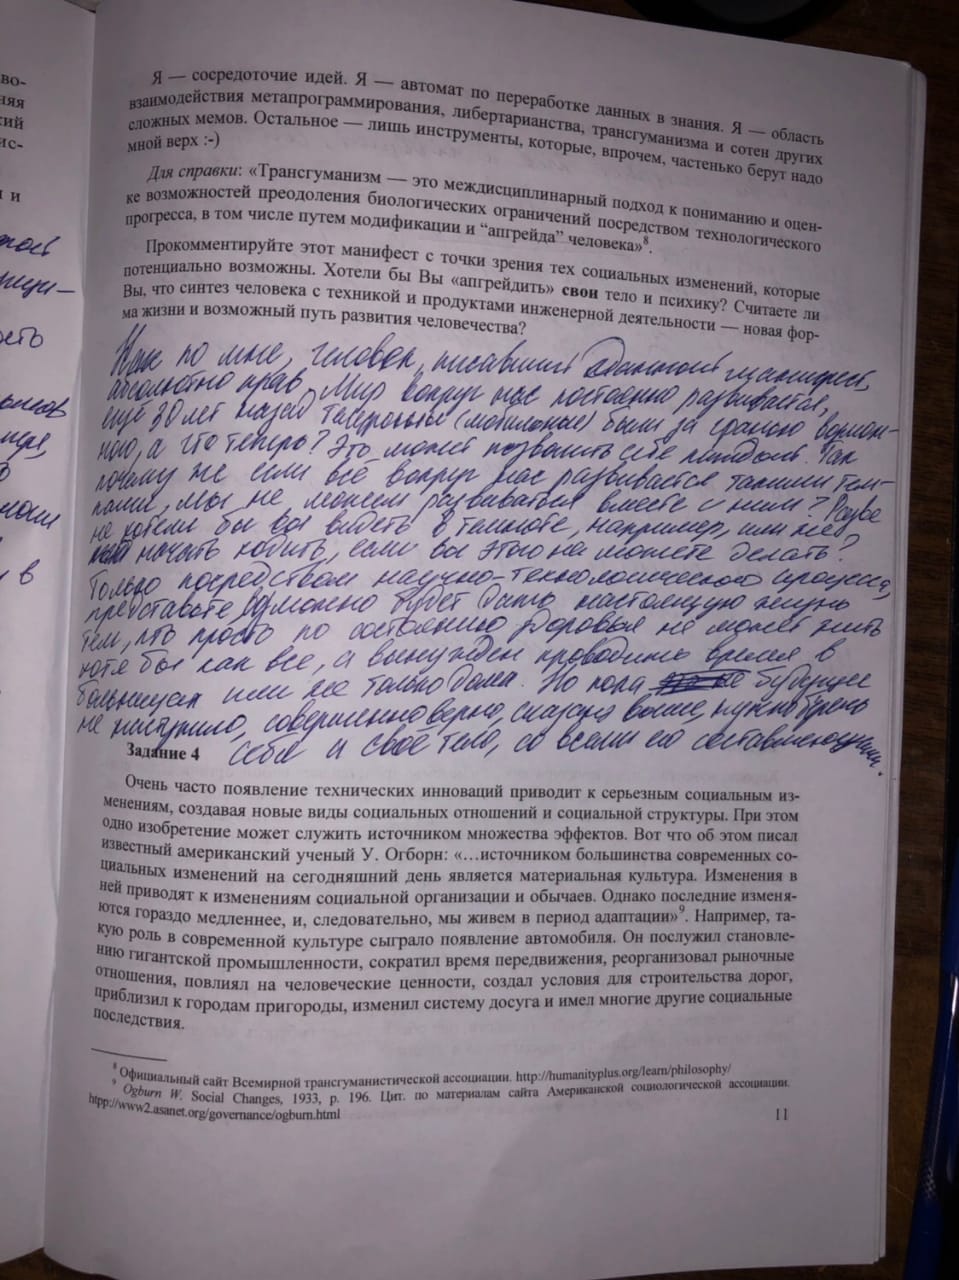 во-
няя
кий
ис-
и и
той
ность
в
и в
Я — сосредоточие идей. Я — автомат по переработке данных в знания. Я — область
взаимодействия метапрограммирования, либертарианства, трансгуманизма и сотен других
сложных мемов. Остальное — лишь инструменты, которые, впрочем, частенько берут надо
мной верх :-)
Для справки: «Трансгуманизм — это междисциплинарный подход к пониманию и оцен-
ке возможностей преодоления биологических ограничений посредством технологического
прогресса, в том числе путем модификации и “апгрейда” человека»⁸.
Прокомментируйте этот манифест с точки зрения тех социальных изменений, которые
потенциально возможны. Хотели бы Вы «апгрейдить» свои тело и психику? Считаете ли
Вы, что синтез человека с техникой и продуктами инженерной деятельности — новая фор-
ма жизни и возможный путь развития человечества?
Как по мне, человек, писавший данный манифест,
абсолютно прав. Мир вокруг нас постоянно развивается,
ещё 30 лет назад телефоны (мобильные) были за гранью
а что теперь? Это может позволить себе каждый. Так
почему же если всё вокруг нас развивается такими тем-
пами, мы не можем развиваться вместе с ним? Разве
не хотели бы вы видеть в темноте, например, или же
начать ходить, если вы этого не можете делать?
Только посредством научно-технологического
представьте, возможно будет дать настоящую жизнь
тем, кто просто по состоянию здоровья не может жить
хотя бы как все, а вынужден проводить время в
больницах или же только дома. Но пока будущее
не наступило, совершенно верно, сказано выше, нужно беречь
себя и своё тело, со всеми его составляющими.
Задание 4
Очень часто появление технических инноваций приводит к серьезным социальным из-
менениям, создавая новые виды социальных отношений и социальной структуры. При этом
одно изобретение может служить источником множества эффектов. Вот что об этом писал
известный американский ученый У. Огборн: «…источником большинства современных со-
циальных изменений на сегодняшний день является материальная культура. Изменения в
ней приводят к изменениям социальной организации и обычаев. Однако последние изменя-
ются гораздо медленнее, и, следовательно, мы живем в период адаптации»⁹. Например, та-
кую роль в современной культуре сыграло появление автомобиля. Он послужил становле-
нию гигантской промышленности, сократил время передвижения, реорганизовал рыночные
отношения, повлиял на человеческие ценности, создал условия для строительства дорог,
приблизил к городам пригороды, изменил систему досуга и имел многие другие социальные
последствия.
⁸ Официальный сайт Всемирной трансгуманистической ассоциации. http://humanityplus.org/learn/philosophy/
⁹ Ogburn W. Social Changes, 1933, p. 196. Цит. по материалам сайта Американской социологической ассоциации.
htpp://www2.asanet.org/governance/ogburn.html
11